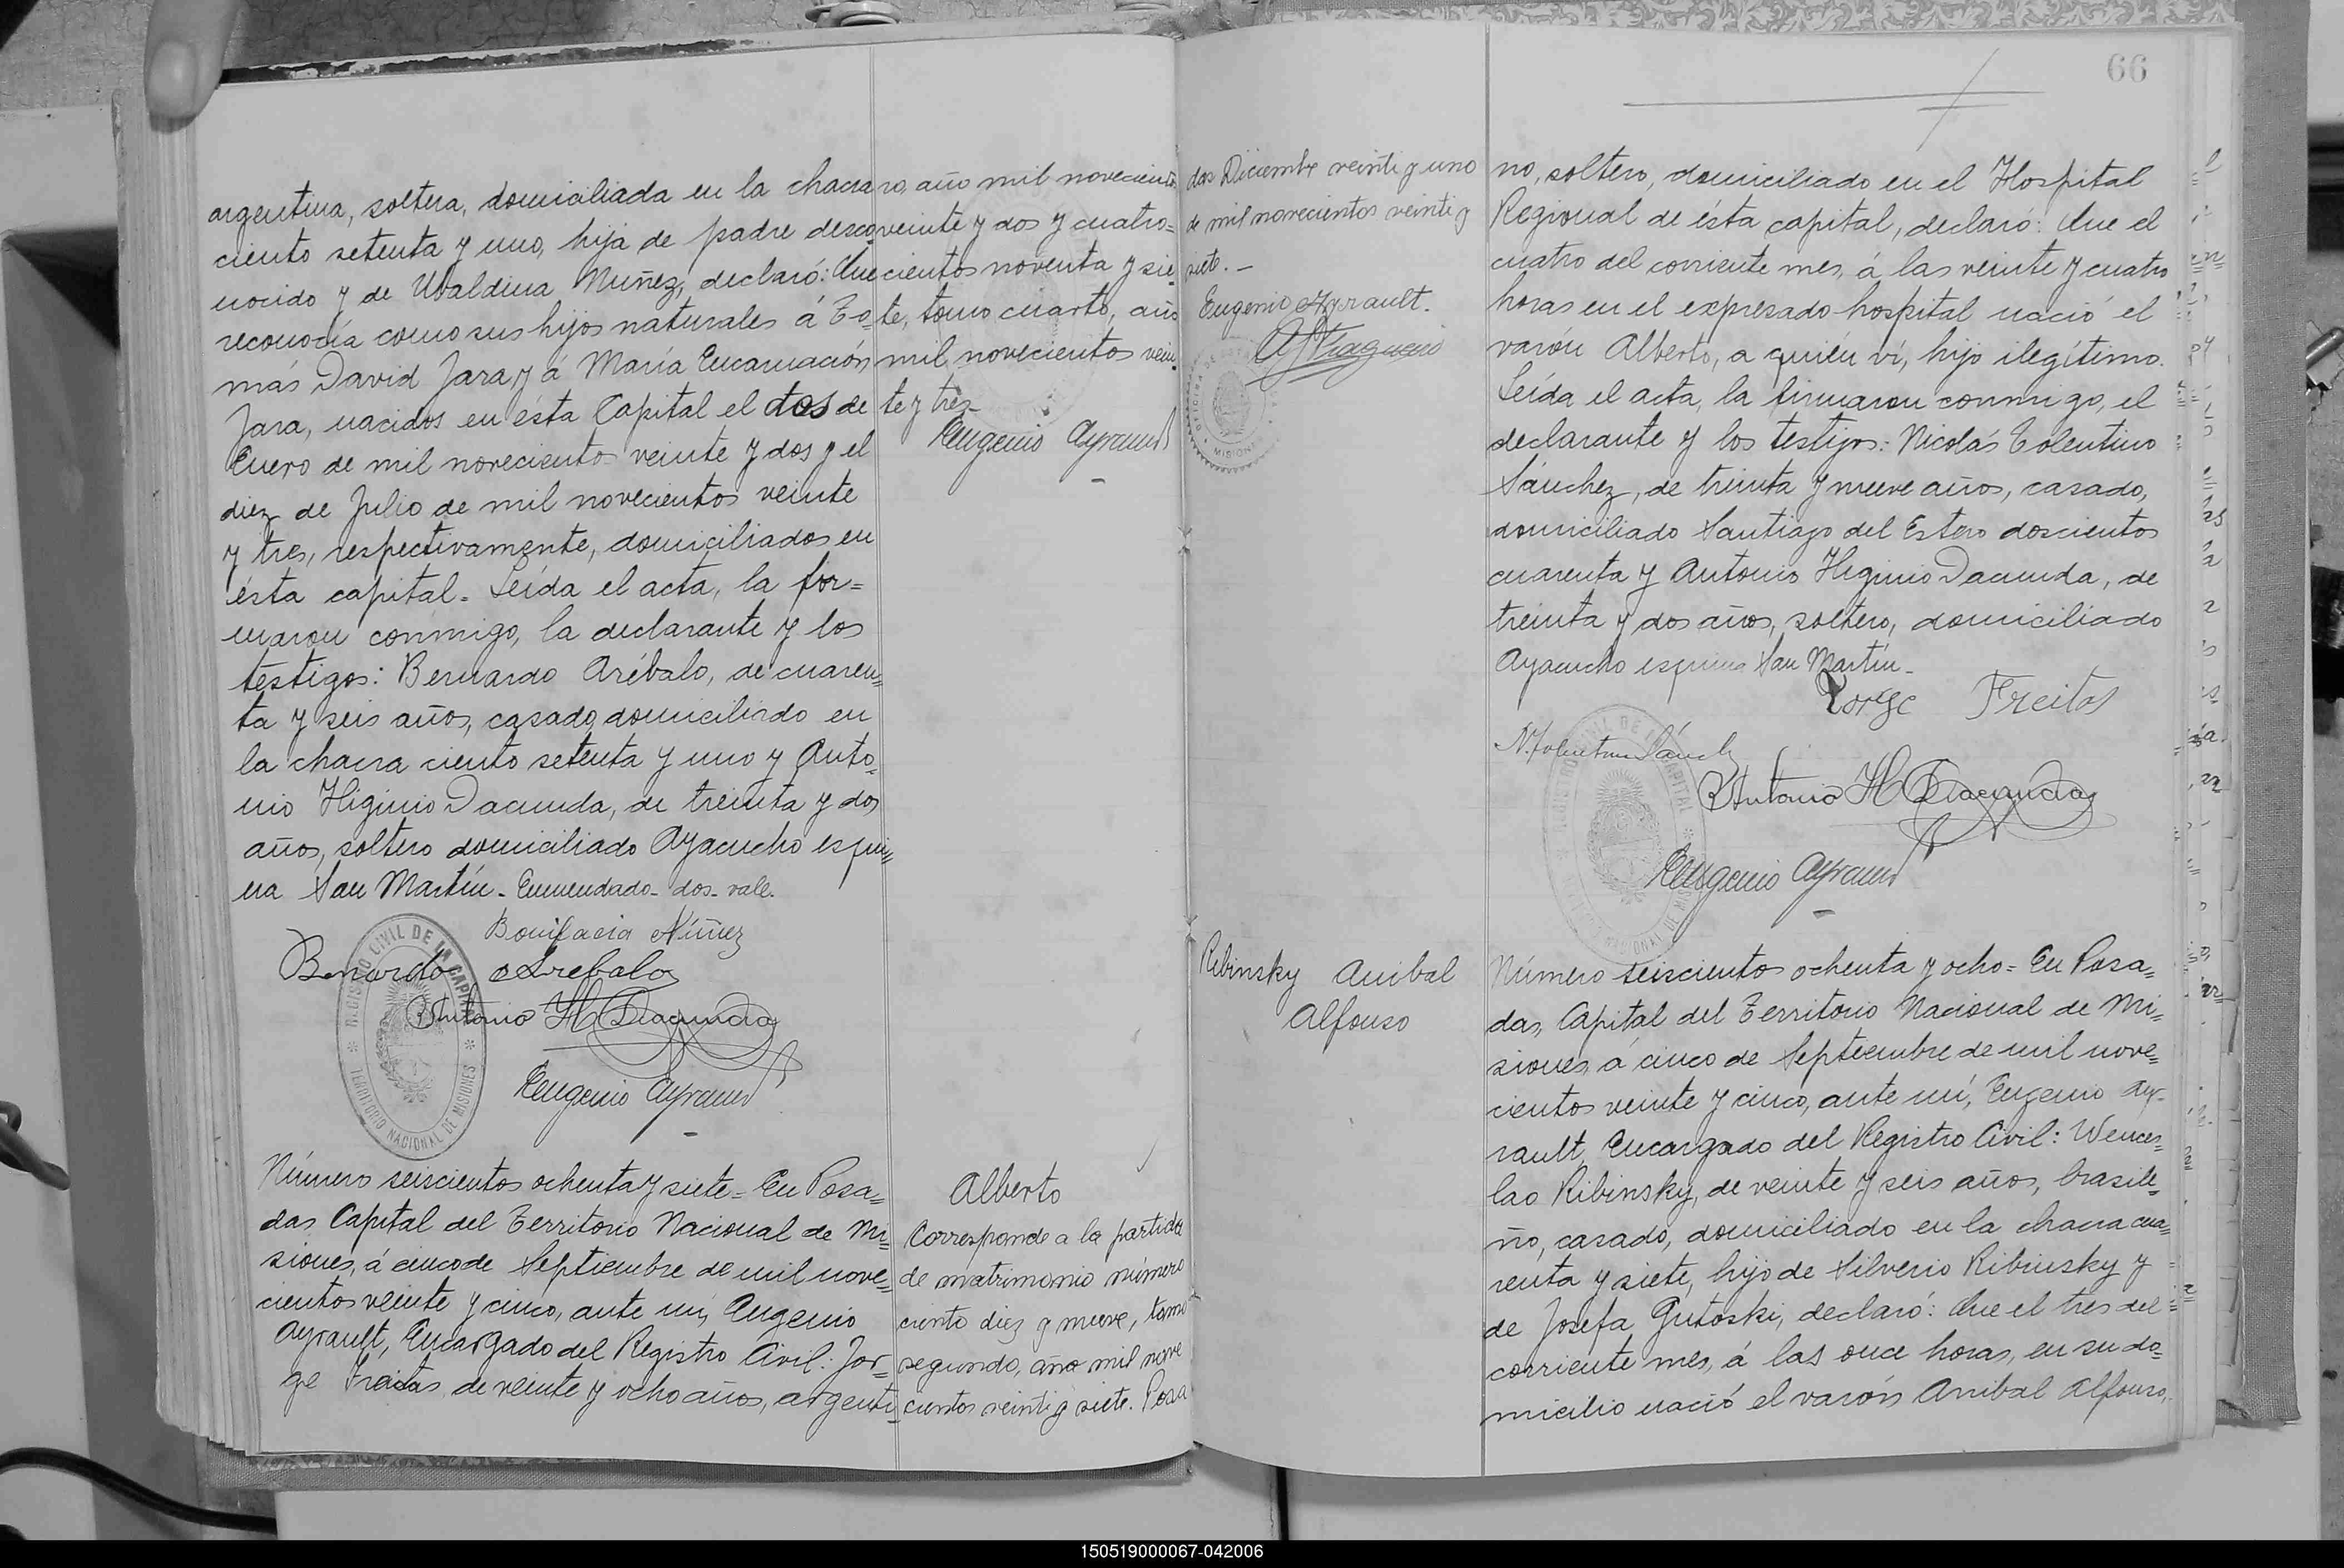 argentina, soltera, domiciliada en la chacra
ciento setenta y uno, hija de padre desco-
nocido y de Ubaldina Nuñez, declaró: Que
reconocía como sus hijos naturales á To-
más David Jara, y á María Encarnación
Jara, nacidos en ésta Capital el dos de
Enero de mil novecientos veinte y dos y el
diez de Julio de mil novecientos veinte
y tres, respectivamente, domiciliados en
ésta capital. Leída el acta, la fir=
maron conmigo, la declarante y los
testigos: Bernardo Arébalo, de cuaren=
ta y seis años, casado, domiciliado en
la chacra ciento setenta y uno y Anto=
nio Higinio Dacunda, de treinta y dos
años, soltero domiciliado Ayacucho esqui=
na San Martín. Enmendado- dos- vale.
Bonifacia Núñez
Bernardo Arebalo
Antonio H Dacunda
Eugenio Ayrault
REGISTRO CIVIL DE LA CAPITAL
TERRITORIO NACIONAL DE MISIONES
ro, año mil novecientos
veinte y dos y cuatro=
cientos noventa y sie=
te, tomo cuarto, año
mil novecientos vein=
te y tres-
Eugenio Ayrault
Número seiscientos ochenta y siete= En Posa=
das Capital del Territorio Nacional de Mi=
siones, á cinco de Septiembre de mil nove=
cientos veinte y cinco, ante mi, Eugenio
Ayrault, Encargado del Registro Civil: Jor-
ge Freitas, de veinte y ocho años, argenti-
Alberto
Corresponde a la partida
de matrimonio número
ciento diez y nueve, tomo
segundo, año mil nove
cientos veinti y siete. Posa
66
das Diciembre veinti y uno
de mil novecientos veinti y
siete.-
Eugenio Ayrault.
no, soltero, domiciliado en el Hospital
Regional de ésta capital, declaró: Que el
cuatro del corriente mes, á las veinte y cuatro
horas en el expresado hospital nació el
varón Alberto, a quién ví, hijo ilegítimo.
Leída el acta, la firmaron conmigo, el
declarante y los testigos: Nicolás Tolentino
Sánchez, de treinta y nueve años, casado,
domiciliado Santiago del Estero doscientos
cuarenta y Antonio Higinio Dacunda, de
treinta y dos años, soltero, domiciliado
Ayacucho esquina San Martín-
Jorge Freitas
N. Tolentino Sánchez
Antonio H Dacunda
Eugenio Ayrault
Ribinsky Anibal
Alfonso
Número seiscientos ochenta y ocho= En Posa=
das, Capital del Territorio Nacional de Mi=
siones, á cinco de Septiembre de mil nove=
cientos veinte y cinco, ante mí, Eugenio Ay-
rault, Encargado del Registro Civil: Wences=
lao Ribinsky, de veinte y seis años, brasile=
ño, casado, domiciliado en la chacra cua=
renta y siete, hijo de Silverio Ribinsky y
de Josefa Gutoski, declaró: Que el tres del
corriente mes, á las once horas, en su do=
micilio nació el varón Anibal Alfonso,
150519000067-042006